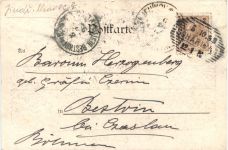 Postkarte
An
Baronin Herzogenberg
geb. Gräfin Czernin
Bestvin
bei Czaslau
Böhmen